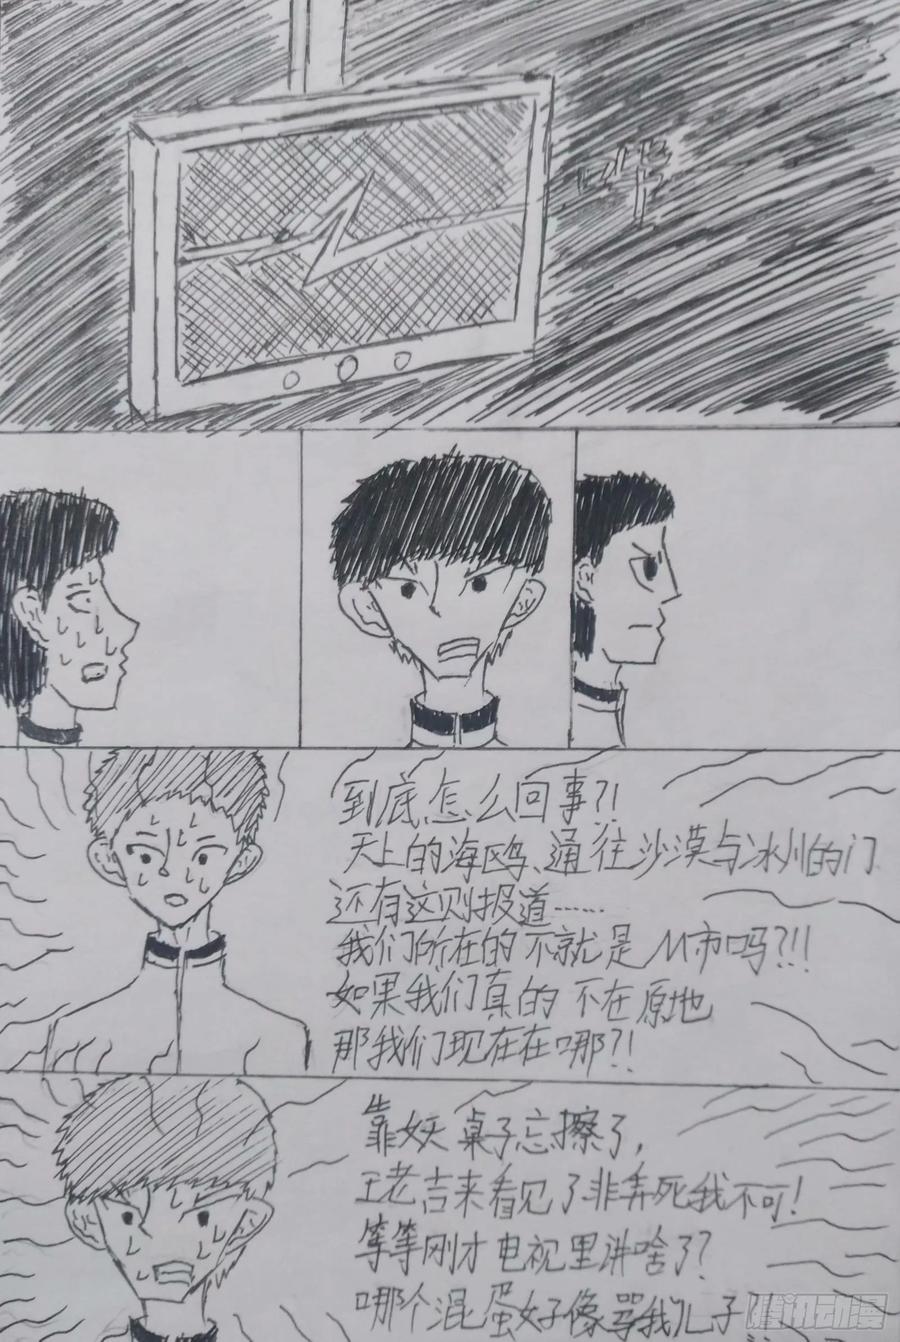 到底怎么回事?!
天上的海鸥、通往沙漠与冰川的门
还有这则报道……
我们所在的不就是M市吗?!!
如果我们真的不在原地
那我们现在在哪?!
靠 桌子忘擦了,
王老吉来看见了非弄死我不可!
等等刚才电视里讲啥了?
哪个混蛋好像骂我儿子
腾讯动漫